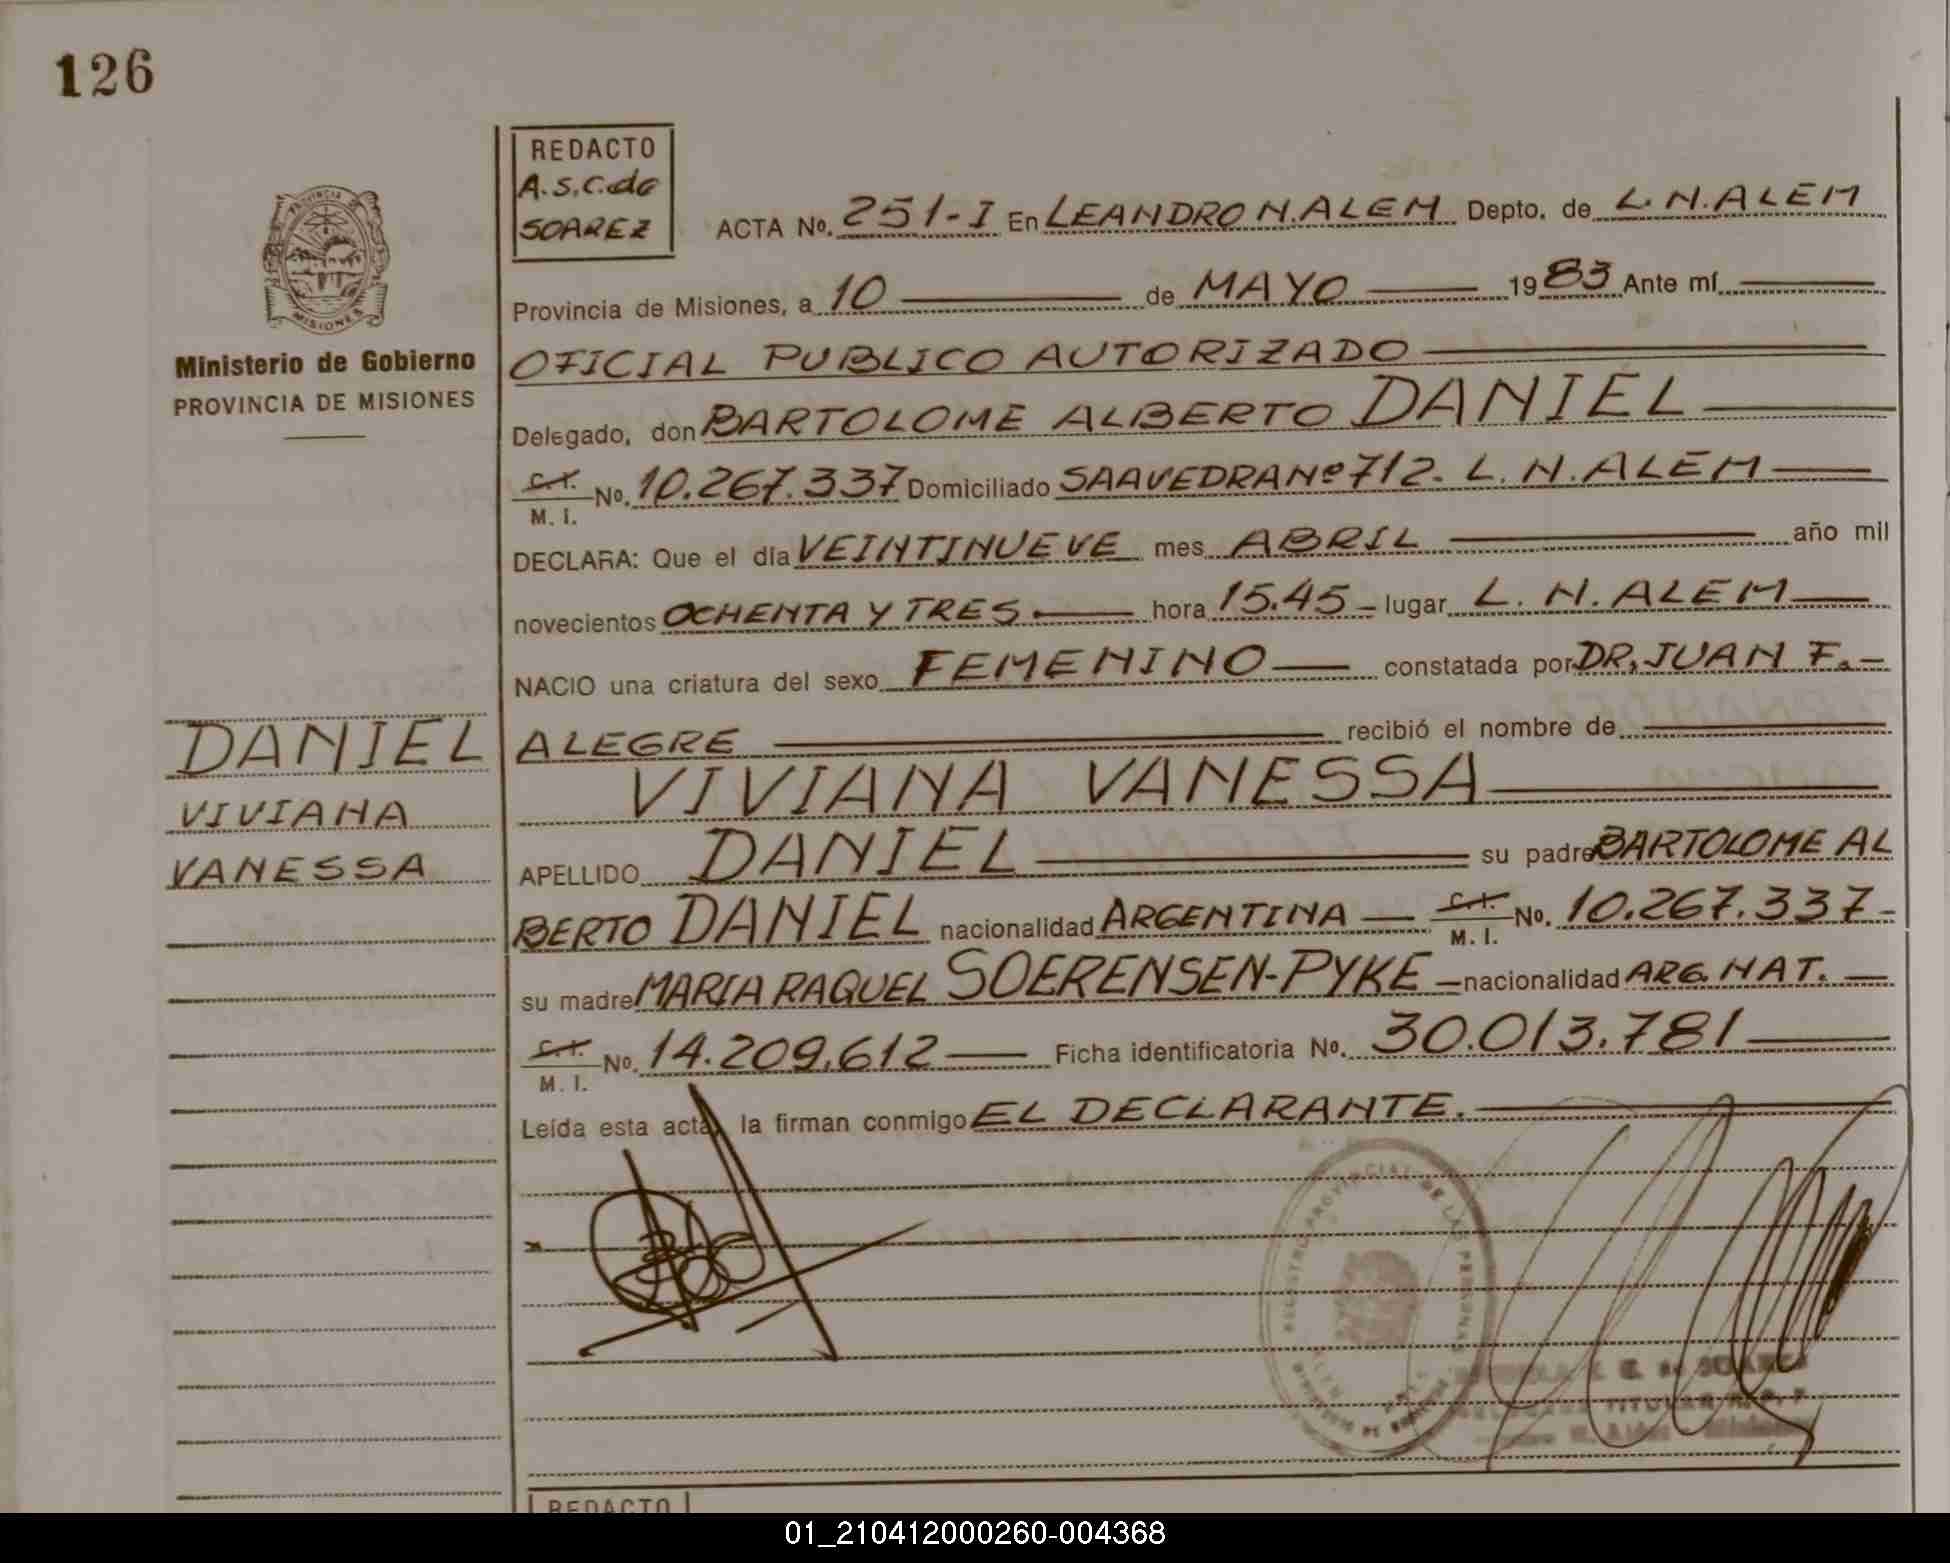 126
REDACTO
A.S.C.de
SOAREZ
ACTA No. 251-I En LEANDRO N. ALEM Depto. de L. N. ALEM
Provincia de Misiones, a 10 de MAYO 1983 Ante mí
OFICIAL PUBLICO AUTORIZADO
Ministerio de Gobierno
PROVINCIA DE MISIONES
Delegado, don BARTOLOME ALBERTO DANIEL
C.I.
M. I. No. 10.267.337 Domiciliado SAAVEDRA Nº 712. L. N. ALEM
DECLARA: Que el día VEINTINUEVE mes ABRIL año mil
novecientos OCHENTA Y TRES hora 15.45 lugar L. N. ALEM
NACIO una criatura del sexo FEMENINO constatada por DR. JUAN F.
ALEGRE recibió el nombre de
VIVIANA VANESSA
DANIEL
VIVIANA
VANESSA
APELLIDO DANIEL su padre BARTOLOME AL
BERTO DANIEL nacionalidad ARGENTINA C.I.
M. I. No. 10.267.337
su madre MARIA RAQUEL SOERENSEN-PYKE nacionalidad ARG. NAT.
C.I.
M. I. No. 14.209.612 Ficha identificatoria No. 30.013.781
Leída esta acta, la firman conmigo EL DECLARANTE.
PROVINCIAL DE LAS PERSONAS
MISIONES
REDACTO
01_210412000260-004368